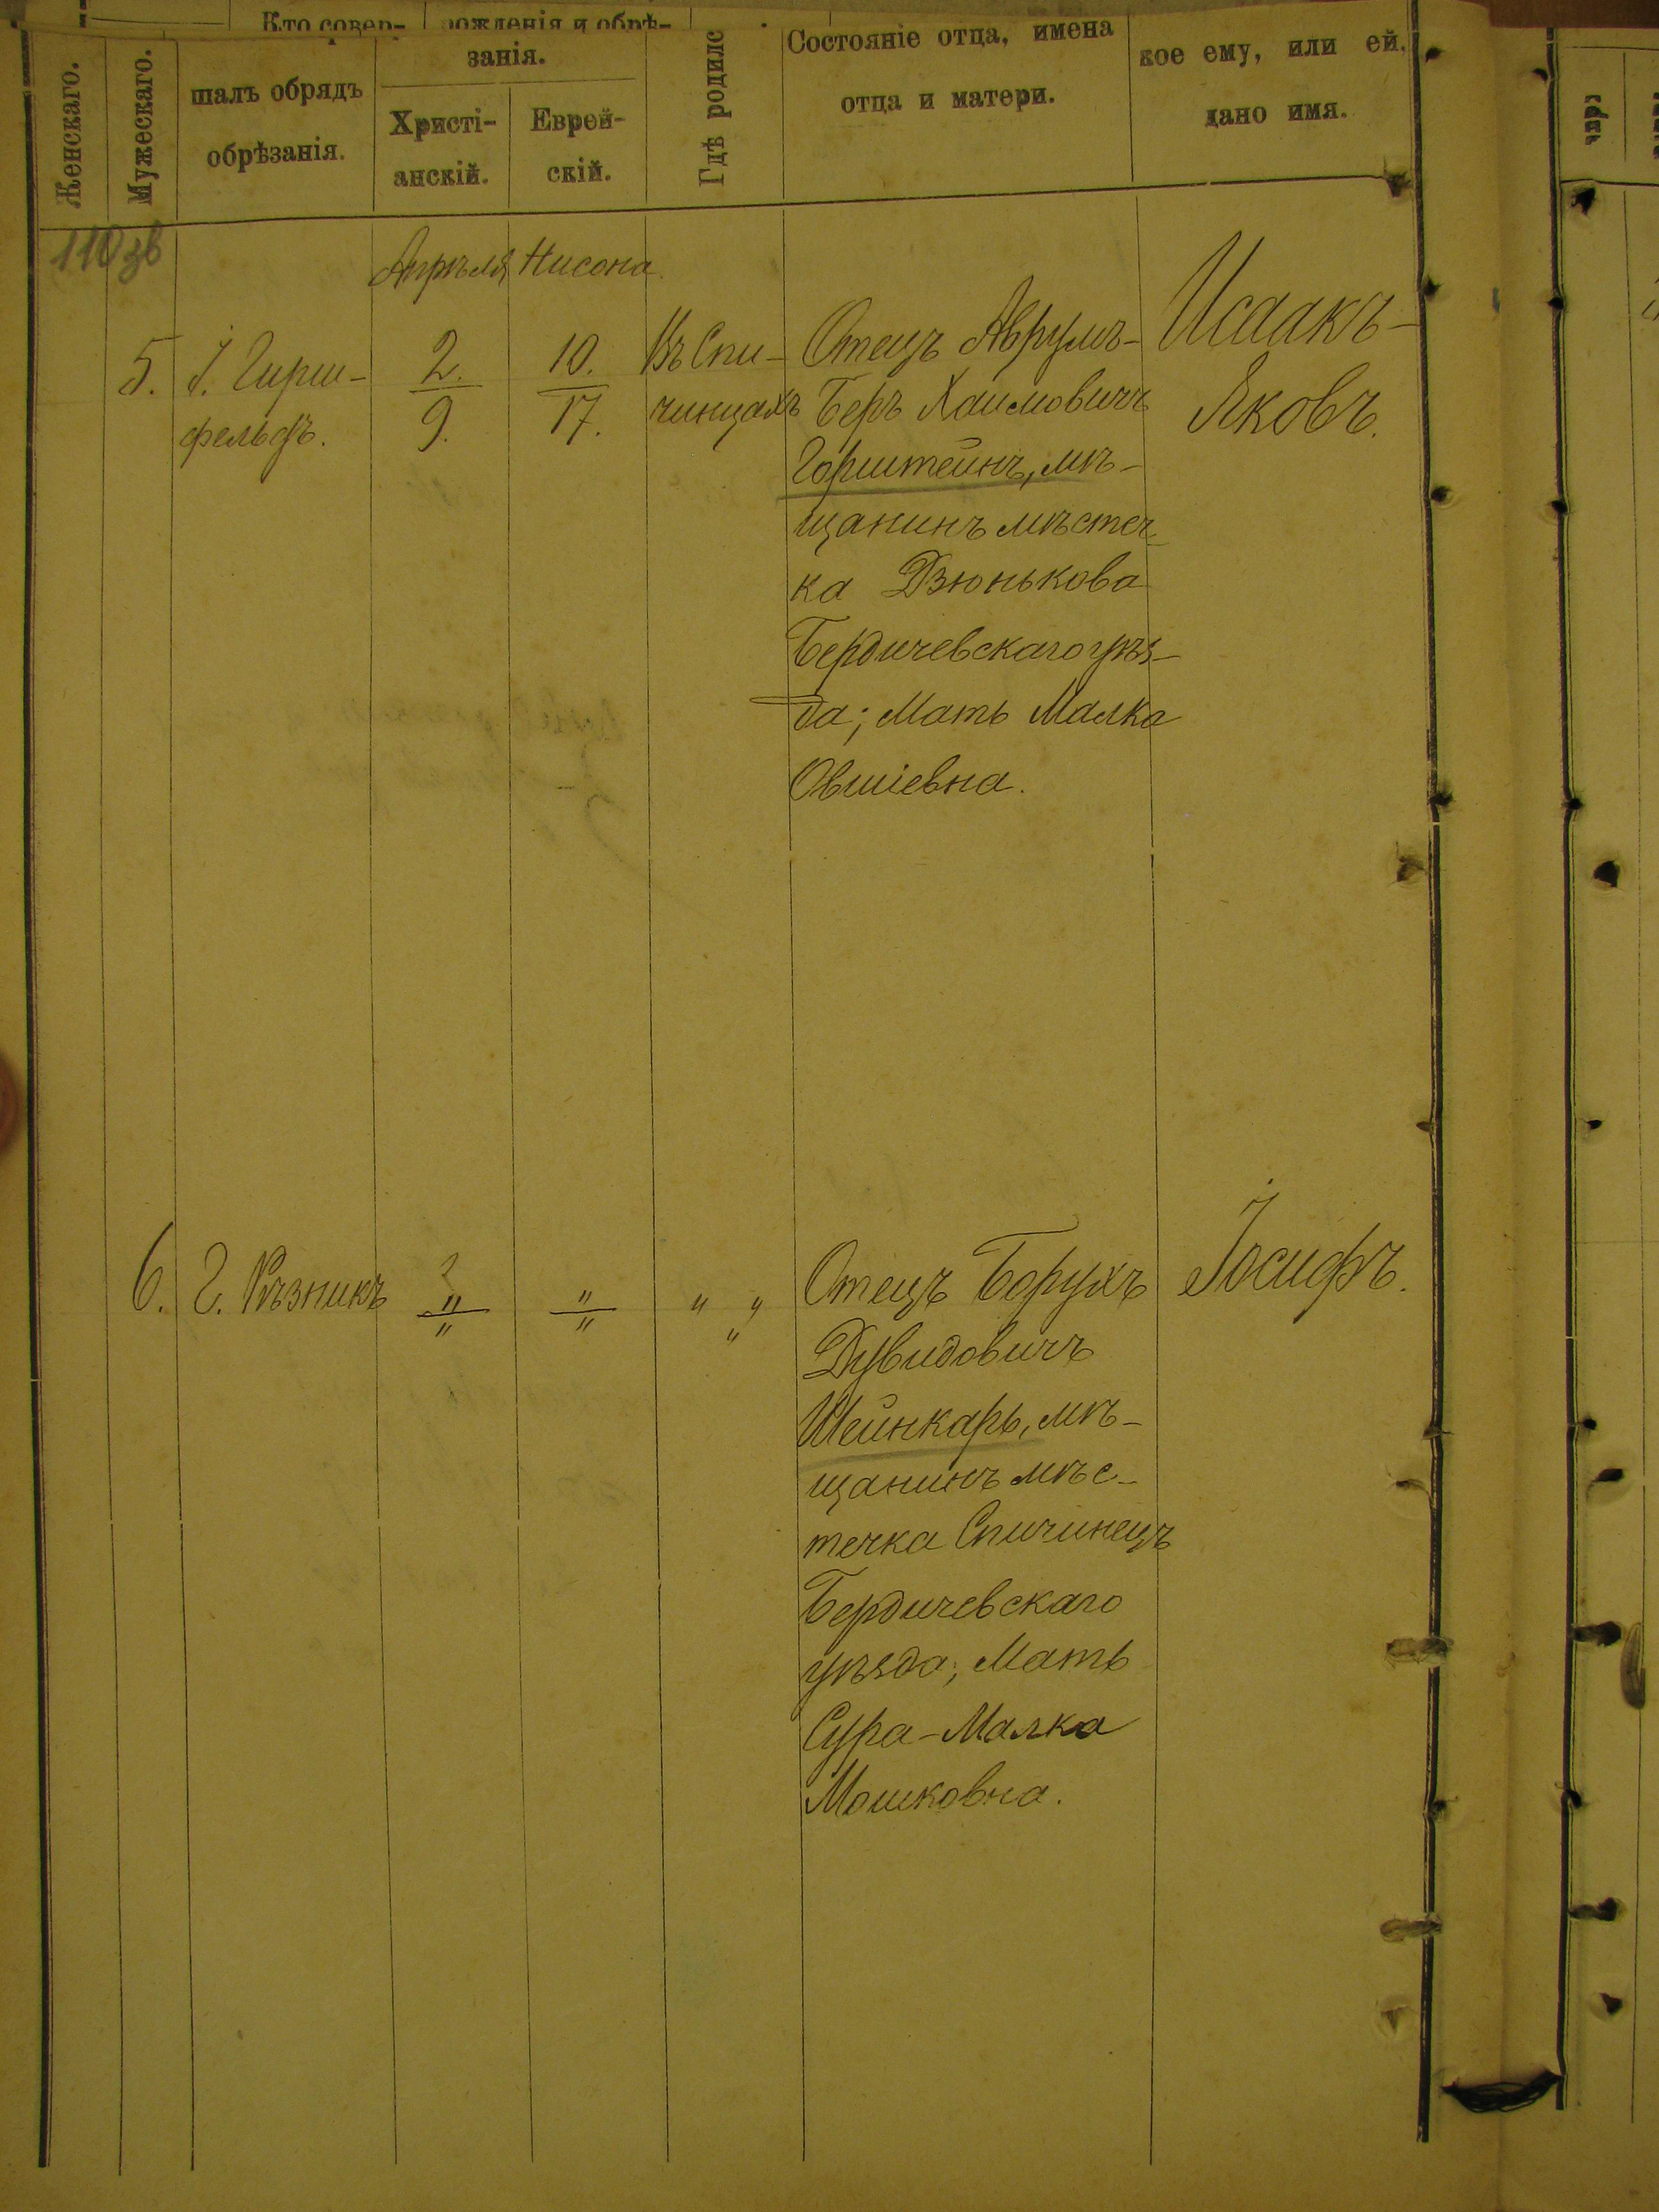 Кто совер-
рожденія и обрѣ-
Женскаго.
Мужескаго.
шалъ обрядъ
обрѣзанія.
занія.
Христі-
анскій.
Еврей-
скій.
Гдѣ родилс
Состояніе отца, имена
отца и матери.
кое ему, или ей,
дано имя.
110 зв
Апрѣля Нисона
5.
І. Гирш-
фельдъ.
2.
9.
10.
17.
Въ Спи-
чинцахъ
Отецъ Аврумъ-
Беръ Хаимовичъ
Горштейнъ, мѣ-
щанинъ местеч-
ка Дзюнькова
Бердичевскаго уѣз-
да; Мать Малка
Овшіевна.
Исаакъ-
Яковъ.
6.
Г. Рѣзникъ
"
"
"
"
" "
"
Отецъ Борухъ
Дувидовичъ
Шейнкарь, мѣ-
щанинъ мѣс-
течка Спичинецъ
Бердичевскаго
уѣзда; Мать
Сура-Малка
Мошковна.
Іосифъ.